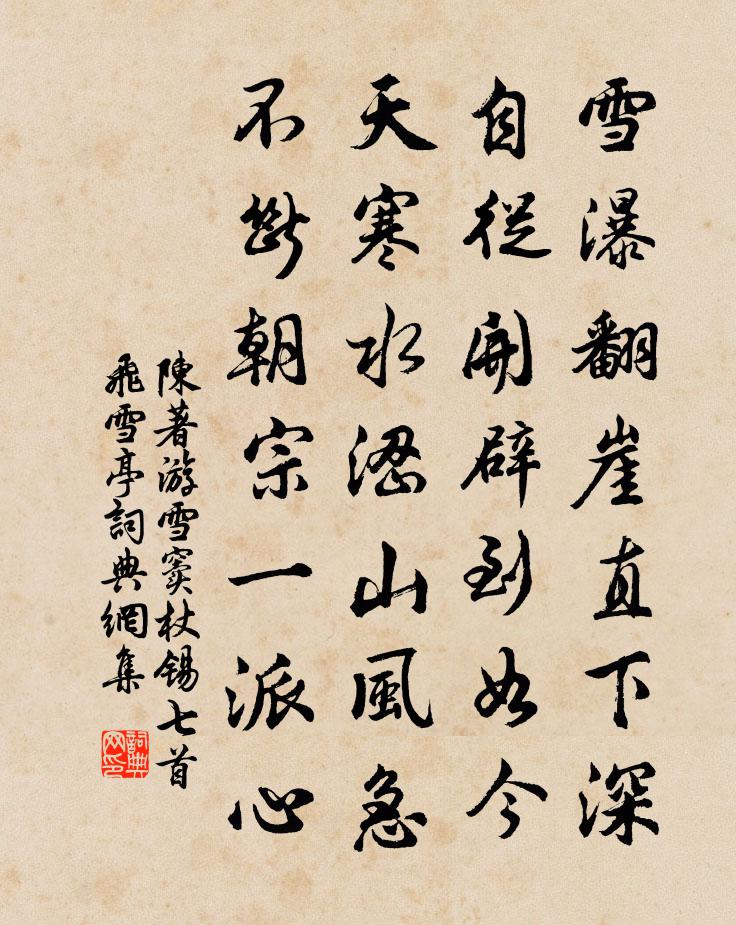 雪瀑翻崖直下深
自從開辟到如今
天寒水澀山風急
不斷朝宗一派心
陳著游雪竇杖錫七首
飛雪亭詞典網集
詞典網印